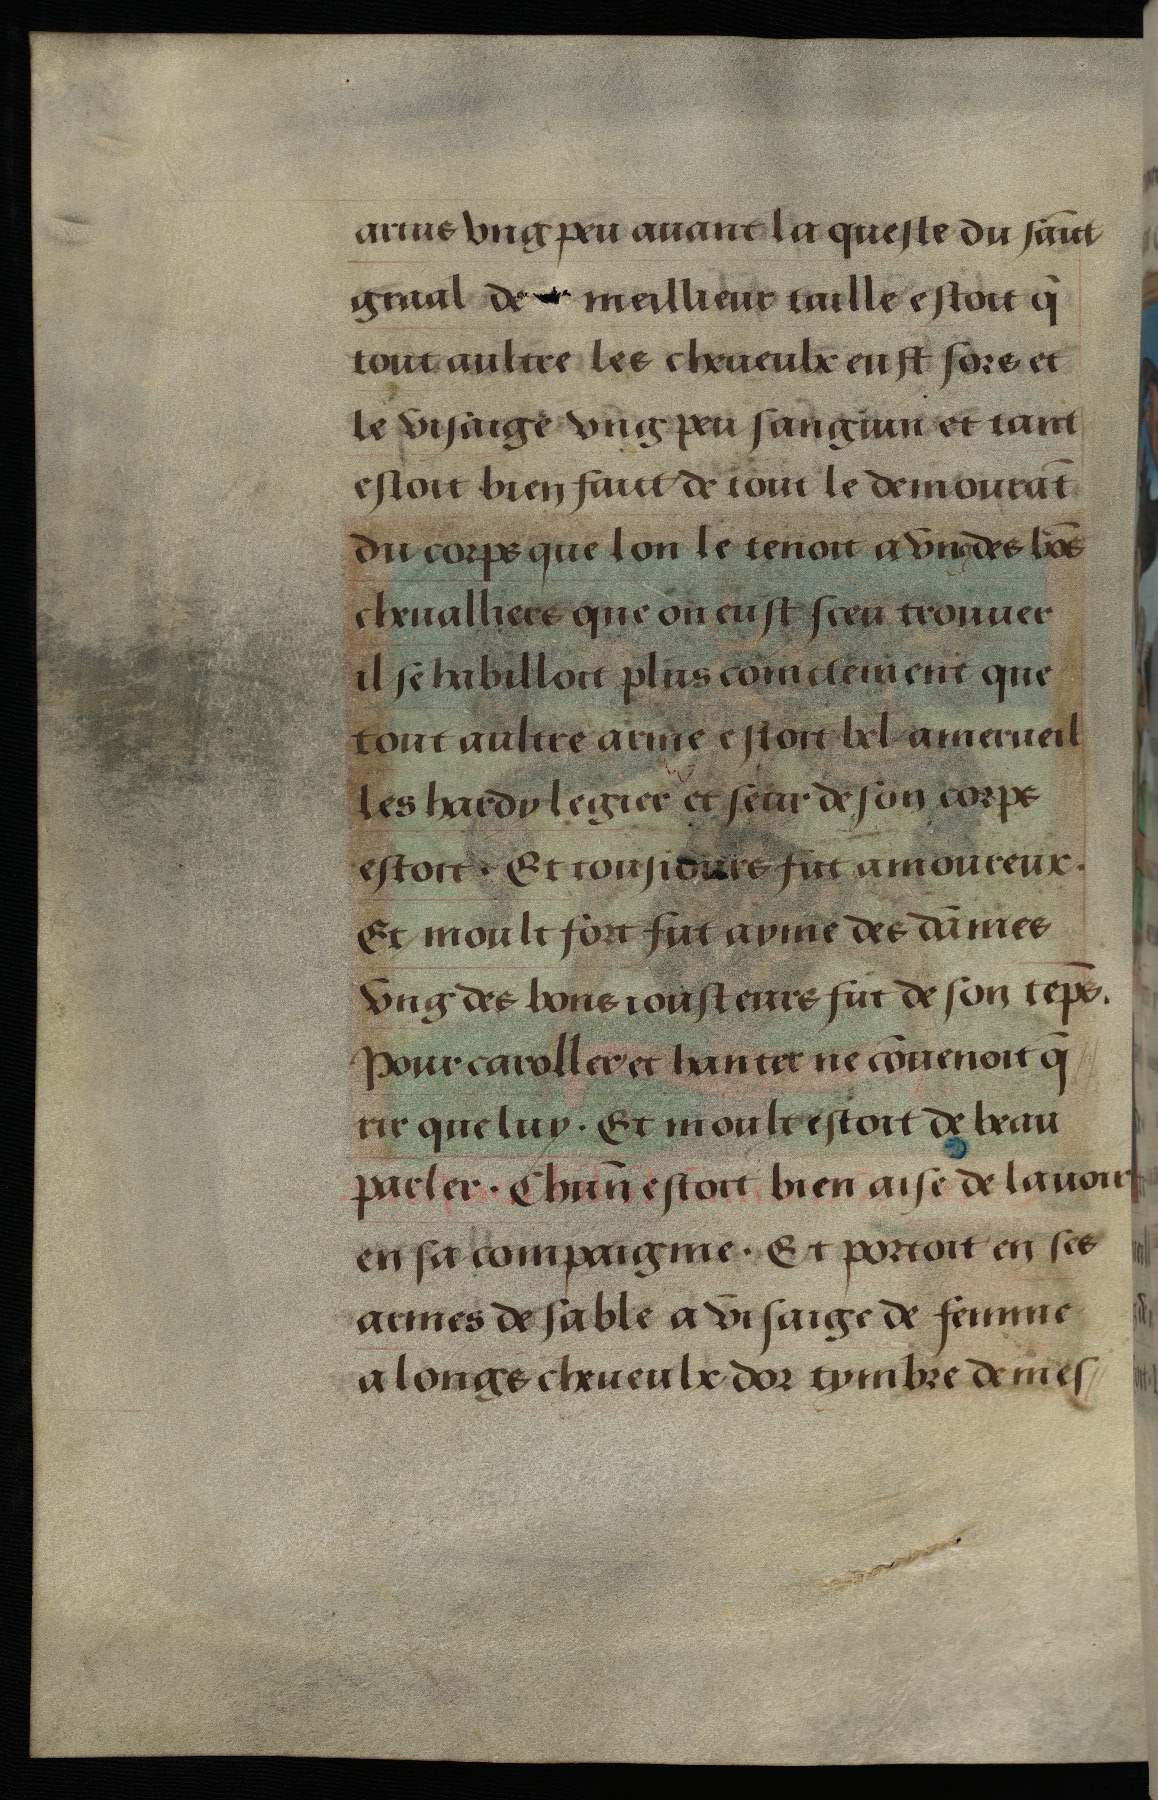 artus vng peu auant la queste du sāīt
graal de meillieur taille estoit q̄
tout aultre les cheueulx eust sors et
le visaige vng peu sanguin et tant
estoit bien faict de tout le demourāt
du corps que lon le tenoit a vng des bōs
cheualliers que on eust sceu trouuer
il se habilloit plus comctement que
tout aultre arme estoit bel amerueil
les hardy legier et seur de son corps
estoit. Et tousiours fut amoureux.
Et moult fort fut ayme des dāmes
vng des bons iousteurs fut de son tēps.
Pour caroller et hanter ne cōuenoit q̄
rir que luy. Et moult estoit de beau
parler. Chūn estoit bien aise de lauoir
en sa compaignie. Et portoit en ses
armes de sable a visaige de femme
a longs cheueulx dor tymbre de mes//